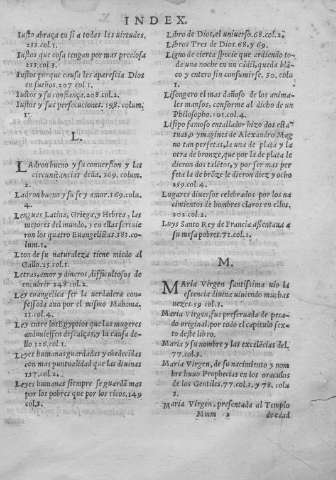 INDEX.
Iusto abraça en si a todas las virtudes, 212.col.1.
Iustos que cosa tengan por mas preciosa 212.col.3.
Iustos porque causa les aparescia Dios en sueños 207 col.1.
Iustos y su confiança, 208.col.2.
Iustos y sus persecuciones. 198. colum. 1.
L.
LAdron bueno y su conuersion y las circunstancias della, 169. colum. 2.
Ladron bueno y su fe y amor. 169. cola. 4.
Lenguas Latina, Griega, y Hebrea, las mejores del mundo, y en ellas escriuie ron los quatro Euangelistas 381. co- lum.1.
Leon de su naturaleza tiene miedo al Gallo. 25.col.1.
Letras, amor y dineros, dificultosos de encubrir 248 col.2.
Ley euangelica ser la verdadera con- fessada aun por el mismo Mahoma. 11.col.4.
Ley entre los Egyptios que las mugeres anduuiessen descalças, y la causa de- llo. 108.col.1.
Leyes humanas guardadas y obedecidas con mas puntualidad que las diuinas 127.col.2.
Leyes humanas siempre se guardã mas por los pobres que por los ricos. 149 col.1.
Libro de Dios, el vniuerso. 68.col.2.
Libros Tres de Dios. 68.y 69.
Ligno de cierta specie que ardiendo to- da vna noche en vn cãdil, queda blã- co y entero sin consumirse. 50. colu 1.
Lisongero el mas dañoso de los anima- les mansos, conforme al dicho de vn Philosopho. 101.col.4.
Lisipo famoso entallador hizo dos esta- tuas, o ymagines de Alexandro Mag no tan perfetas, la vna de plata y la otra de bronze, que por la de plata le dieron diez talẽtos, y por ser mas per- feta la de brõze le dieron diez y ocho 259.col.4.
Lugares diuersos celebrados por los na cimientos de hombres claros en ellos, 302.col.2.
Luys Santo Rey de Francia assentaua a su mesa pobres 71.col.1.
M.
MAria Virgen santissima vio la essencia diuina viuiendo muchas vezes. 19 col.1.
Maria Virgen, fue preseruada de peca- do original. por todo el capitulo sex- to deste libro.
Maria y su nombre y las excelẽcias del, 77.col.3.
Maria Virgen, de su nacimiento y nom bre huuo Prophecias en los oraculos de los Gentiles, 77.col.2. y 78. colu 3.
Maria Virgen, presentada al Templo
Mmm 2 de edad